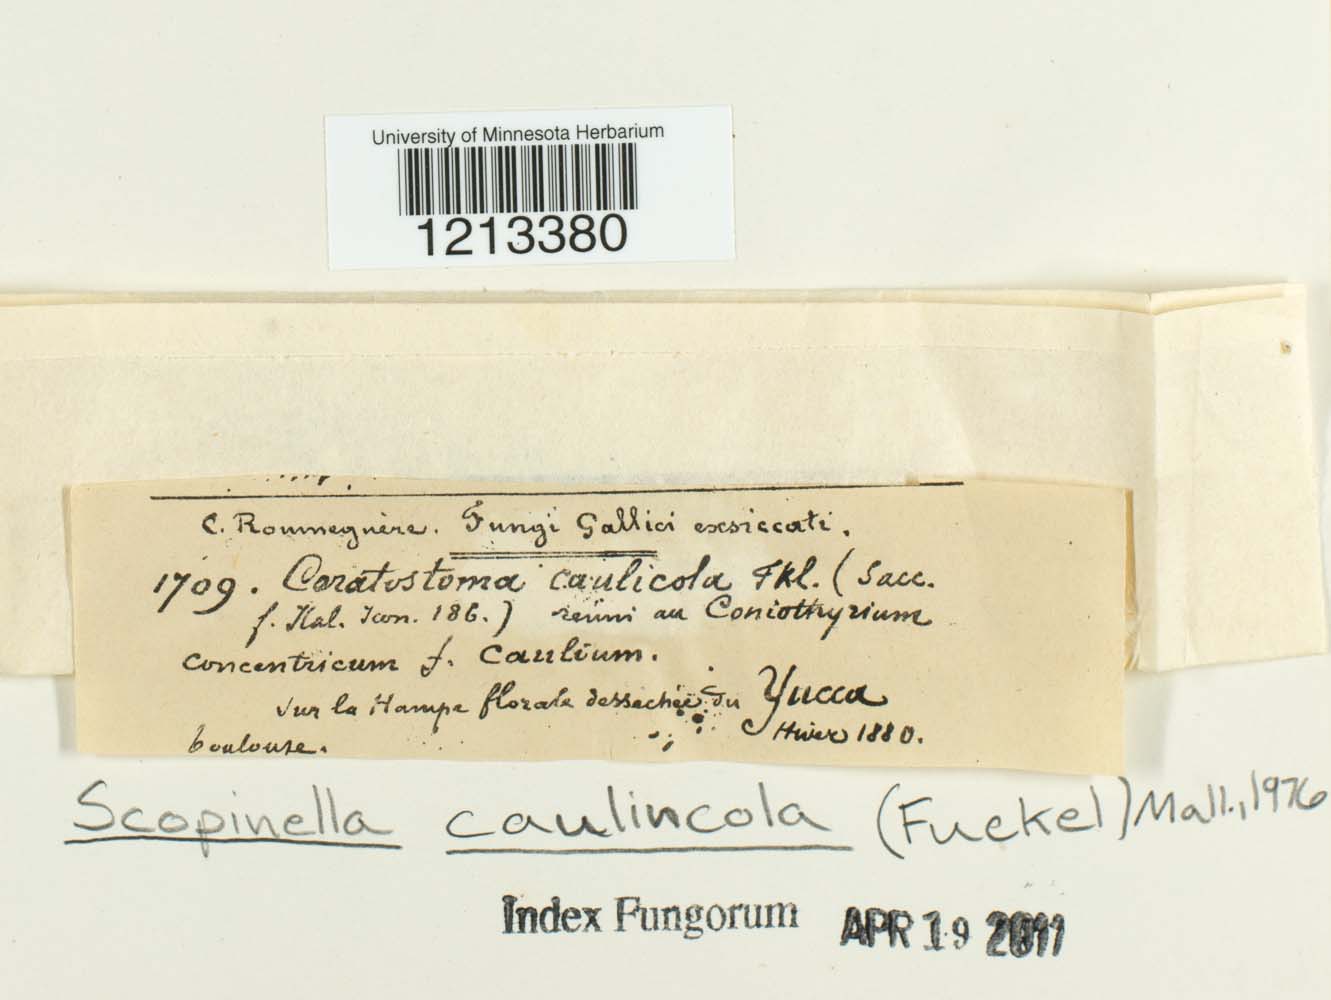 University of Minnesota Herbarium
1213380
C. Roumeguère. Fungi Gallici exsiccati.
1709. Ceratostoma caulicola Fkl. (Sacc.
f. Ital. Icon. 186.) réuni au Coniothyrium
concentricum f. Caulium.
Sur la Hampe florale dessechée du Yucca
Toulouse. Hiver 1880.
Scopinella caulincola (Fuckel) Mall., 1976
Index Fungorum APR 19 2011